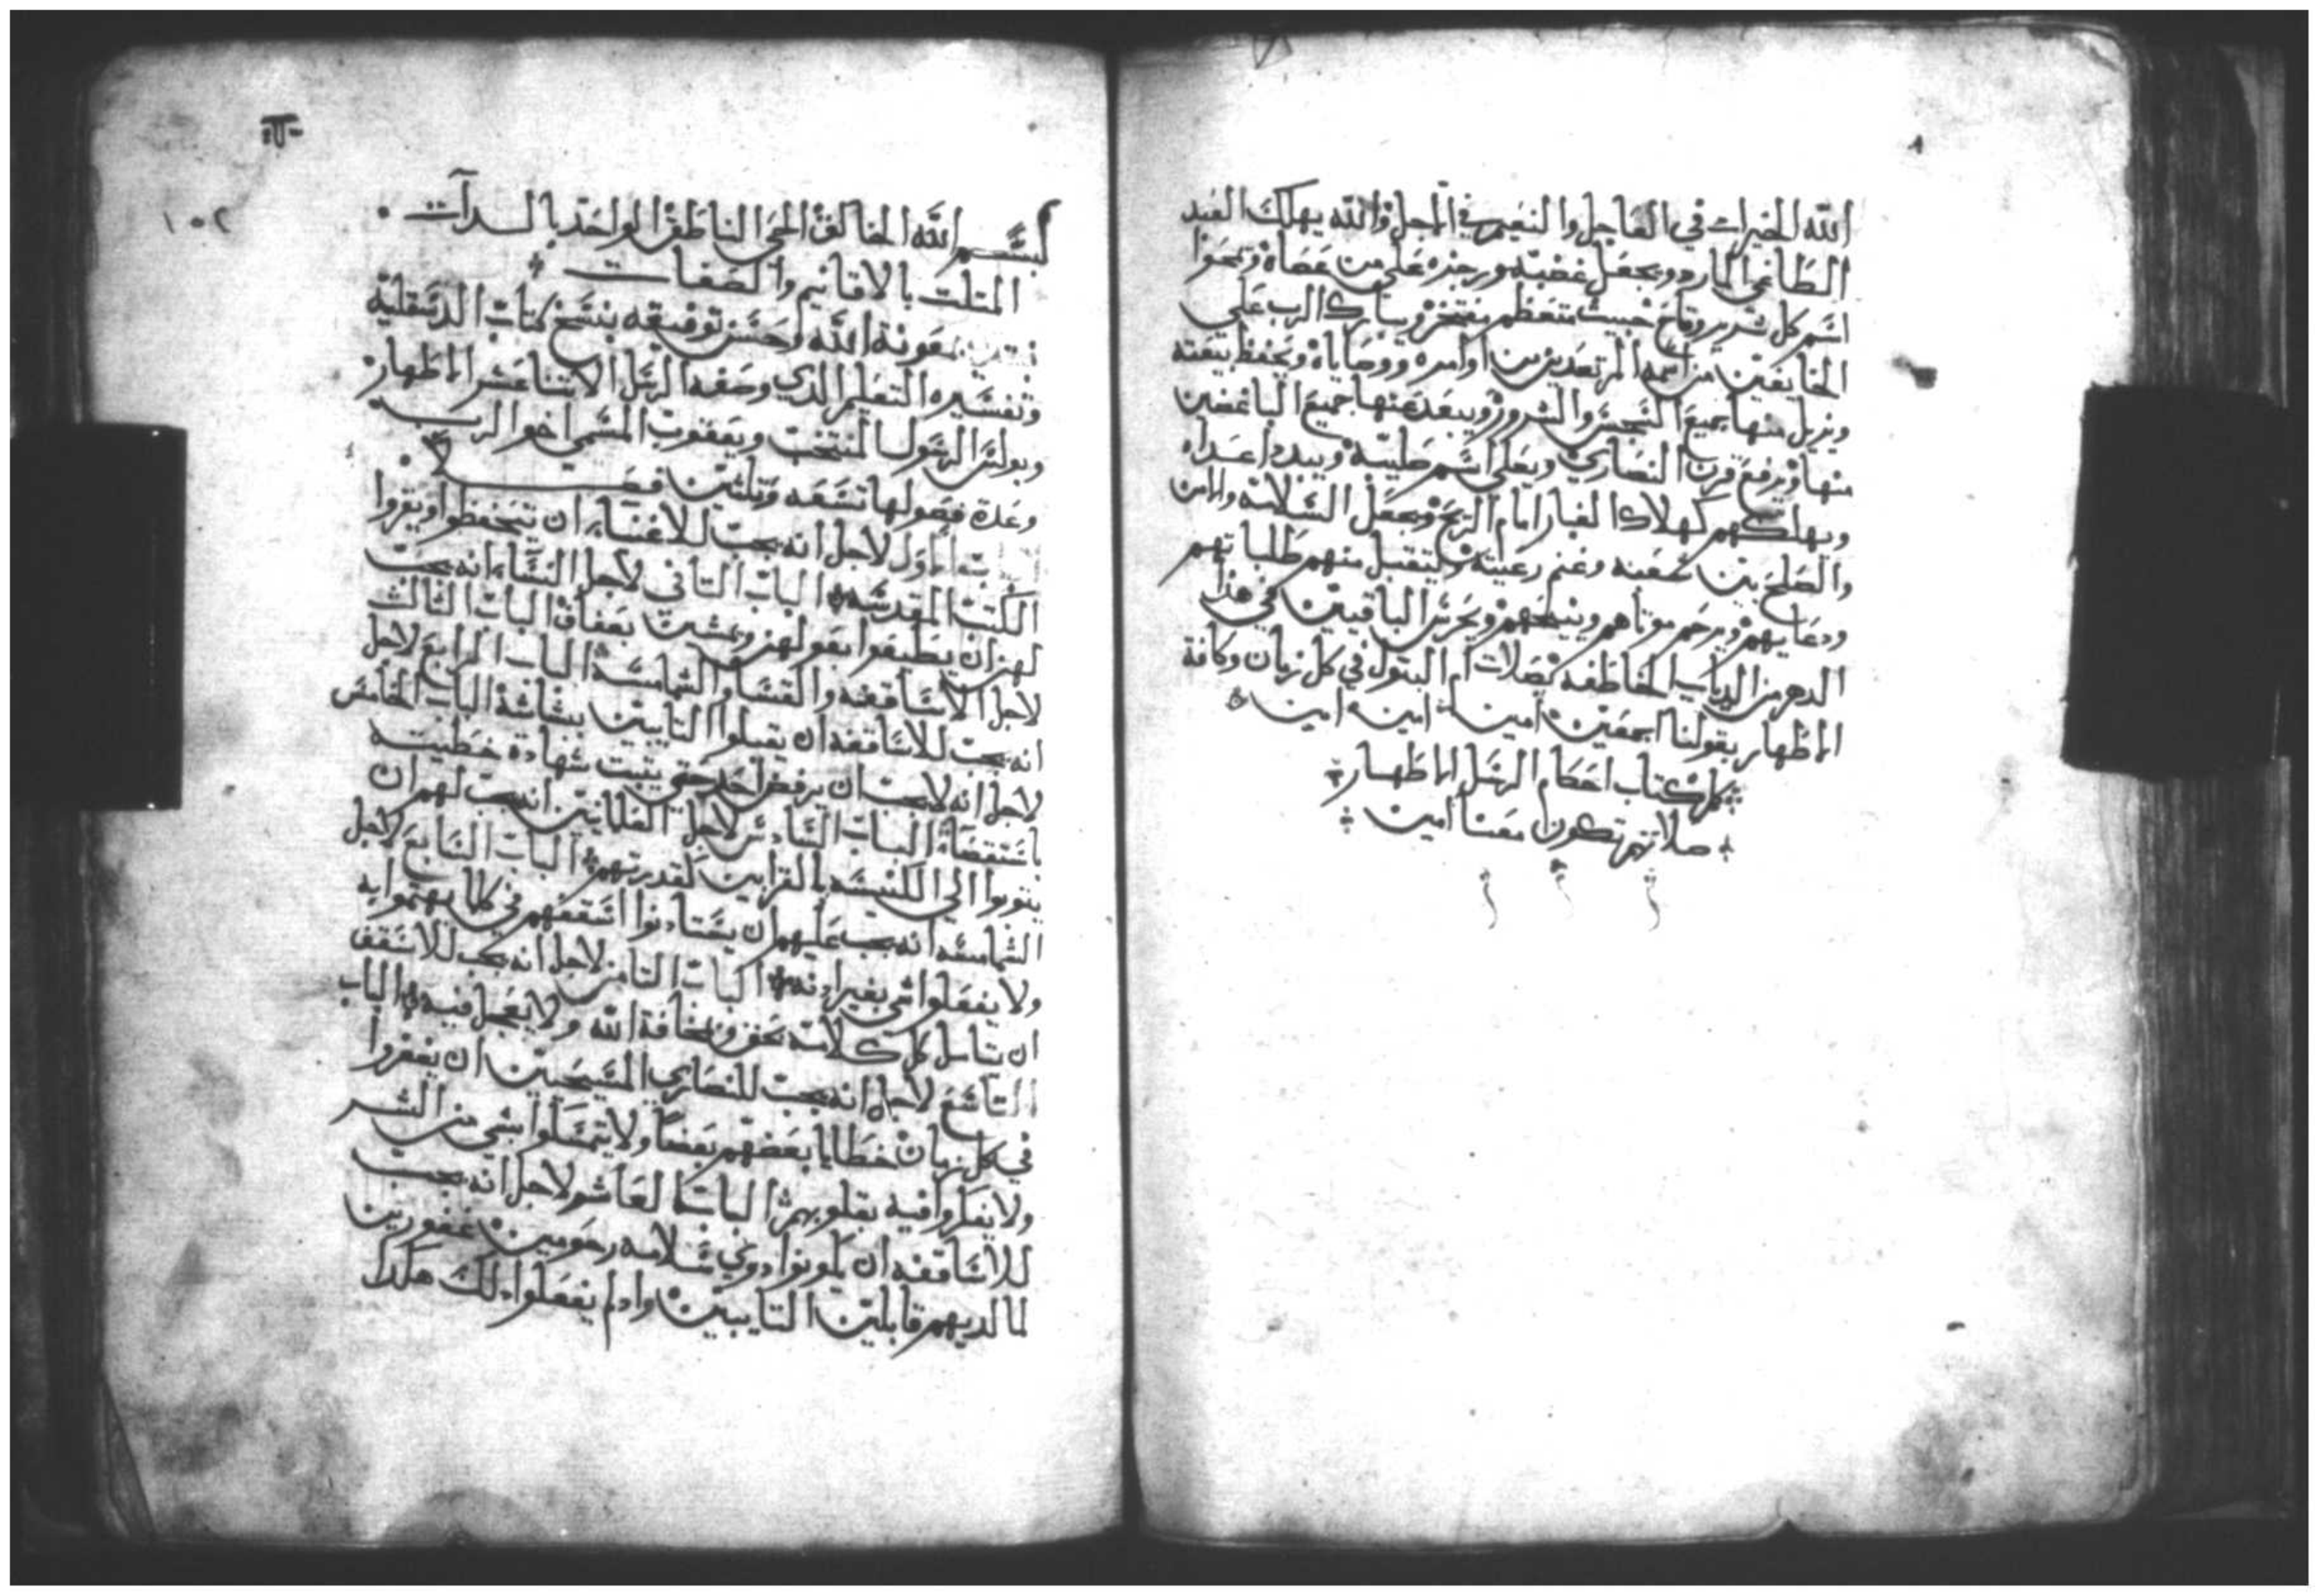 الله الخيرات في العاجل والنعيم في الاجل والله يهلك العبد
الطاغي المارد ويجعل غضبه ورجزه على من عصاه ويمحوا
اسم كل شرير وقاح خبيث متعظم مفتخر ويبارك الرب علي
الخايفين من اسمه المرتعدين من اوامره ووصاياه ويحفظ بيعته
ويزيل منها جميع النجس والشرور ويبعد عنها جميع الباغضين
منها ويرفع قرن النصاري ويعلي اسم صليبه ويبدد اعداه
ويهلكهم كهلاك الغبار امام الريح ويجعل السلامه والامن
والصلح بين شعبه وغنم رعيته ويتقبل منهم طلباتهم
ودعايهم ويرحم موتاهم وينيحهم ويحرس الباقيين في هذا
الدهر من الدياب الخاطفه بصلات ام البتول في كل زمان وكافة
الاطهار بقولنا اجمعين امين امين امين
كمل كتاب احكام الرسل الاطهار
صلاتهم تكون معنا امين
١٠٢
بسم الله الخالق الحي الناطق الواحد بالذات
المتلت بالاقانيم والصفات
نبتدي بمعونة الله وحسن توفيقه بنسخ كتاب الدسقلية
وتفسيره التعليم الذي وصفه الرسل الاتناعشر الاطهار
وبولس الرسول المنتخب ويعقوب المسمي اخو الرب
وعدة فصولها تسعه وتلتين فصلا
الاول لاجل انه يجب للاغنياء ان يتحفظوا ويقروا
الكتب المقدسه الباب التاني لاجل النساء انه يجب
لهن ان يطيعوا بعولهن ويمشين بعفاف الباب التالت
لاجل الاساقفه والقسا والشمامسه الباب الرابع لاجل
انه يجب للاساقفه ان يقبلوا التايبين ببشاشة الباب الخامس
لاجل انه لا يجب ان يرفض احد حتي يتبت شهاده خطيته
باستقصاه الباب السادس لاجل العلمانيين انه يجب لهم ان
ينوبوا الي الكنيسه بالقرابين كقدرتهم الباب السابع لاجل
الشمامسه انه يجب عليهم ان يستادنوا اسقفهم في كلما يهتموا به
ولا يفعلوا شي بغير ادنه الباب التامن لاجل انه يجب للاسقف
ان يتامل كل كلامه بحق ومخافة الله ولا يعجل فيه الباب
التاسع لاجل انه يجب للنصاري المسيحيين ان يغفروا
في كل زمان خطايا بعضهم بعضا ولا يتمسكوا بشي من الشر
ولا يفكروا فيه بقلوبهم الباب العاشر لاجل انه يجب
للاساقفه ان يكونوا دوي سلامه رحومين غفورين
لما لديهم قابلين التايبين وادا لم يفعلوا دلك هكدا